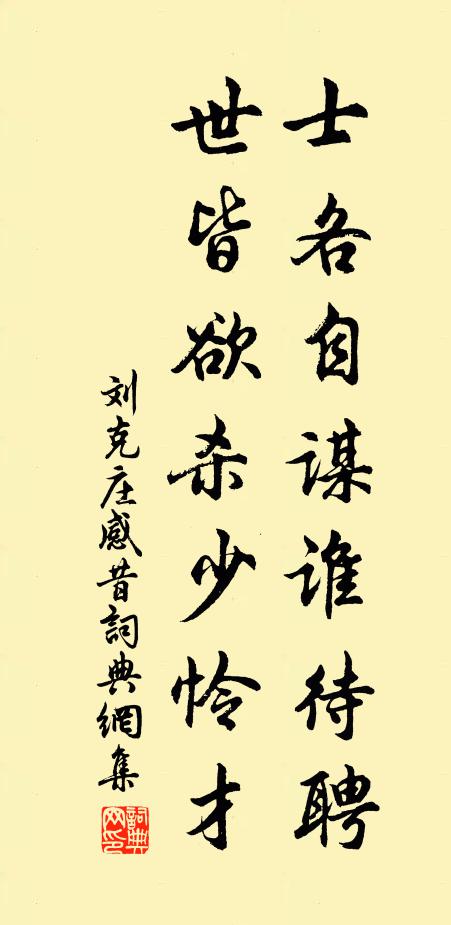 士各自谋谁待聘
世皆欲杀少怜才
刘克庄感昔詞典網集
詞典网印